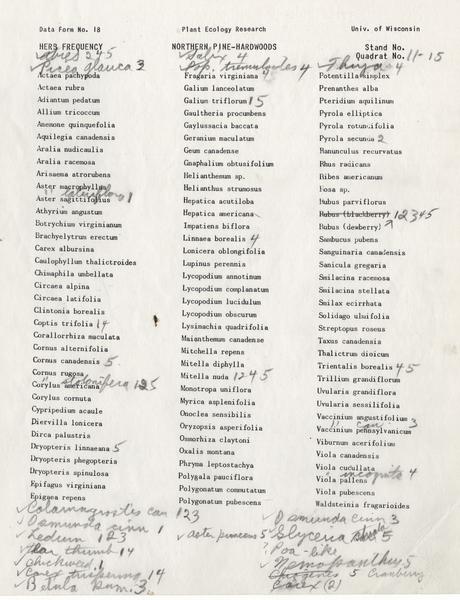 Data Form No. 18 Plant Ecology Research Univ. of Wisconsin
HERB FREQUENCY NORTHERN PINE-HARDWOODS Stand No.
Quadrat No. 11-15
✓Abies 245
✓Picea glauca 3
Actaea pachypoda
Actaea rubra
Adiantum pedatum
Allium tricoccum
Anemone quinquefolia
Aquilegia canadensis
Aralia nudicaulis
Aralia racemosa
Arisaema atrorubens
Aster macrophyllus
" lateriflor 1
Aster sagittifolius
Athyrium angustum
Botrychium virginianum
Brachyelytrum erectum
Carex albursina
Caulophyllum thalictroides
Chimaphila umbellata
Circaea alpina
Circaea latifolia
Clintonia borealis
Coptis trifolia 14
Corallorrhiza maculata
Cornus alternifolia
Cornus canadensis 5
Cornus rugosa
" stolonifera 125
Corylus americana
Corylus cornuta
Cypripedium acaule
Diervilla lonicera
Dirca palustris
Dryopteris linnaeana 5
Dryopteris phegopteris
Dryopteris spinulosa
Epifagus virginiana
Epigaea repens
✓Calamagrostis can 123
✓Osmunda cinn 1
✓Ledium 123
✓ thumb 14
✓chickweed 1
✓Carex trisperma 14
✓Betula pum. 3
✓Salix 4
✓Pop. tremuloides 4
Fragaria virginiana 4
Galium lanceolatum
Galium triflorum 15
Gaultheria procumbens
Gaylussacia baccata
Geranium maculatum
Geum canadense
Gnaphalium obtusifolium
Helianthemum sp.
Helianthus strumosus
Hepatica acutiloba
Hepatica americana
Impatiens biflora
Linnaea borealis 4
Lonicera oblongifolia
Lupinus perennis
Lycopodium annotinum
Lycopodium complanatum
Lycopodium lucidulum
Lycopodium obscurum
Lysimachia quadrifolia
Maianthemum canadense
Mitchella repens
Mitella diphylla
Mitella nuda 1245
Monotropa uniflora
Myrica asplenifolia
Onoclea sensibilis
Oryzopsis asperifolia
Osmorhiza claytoni
Oxalis montana
Phryma leptostachya
Polygala pauciflora
Polygonatum commutatum
Polygonatum pubescens
✓aster puniceus 5
✓Thuja 4
Potentilla simplex
Prenanthes alba
Pteridium aquilinum
Pyrola elliptica
Pyrola rotundifolia
Pyrola secunda 2
Ranunculus recurvatus
Rhus radicans
Ribes americanum
Rosa sp.
Rubus parviflorus
Rubus (blackberry) 12345
Rubus (dewberry)
Sambucus pubens
Sanguinaria canadensis
Sanicula gregaria
Smilacina racemosa
Smilacina stellata
Smilax ecirrhata
Solidago ulsifolia
Streptopus roseus
Taxus canadensis
Thalictrum dioicum
Trientalis borealis 45
Trillium grandiflorum
Uvularia grandiflora
Uvularia sessilifolia
Vaccinium angustifolium
" can 3
Vaccinium pennsylvanicum
Viburnum acerifolium
Viola canadensis
Viola cucullata
" incognita 4
Viola pallens
Viola pubescens
Waldsteinia fragarioides
✓Osmunda cinn 3
✓Glyceria 5
?Poa-like
✓Nemopanthus 5
Chiogenes 5 Cranberry
Carex (2)